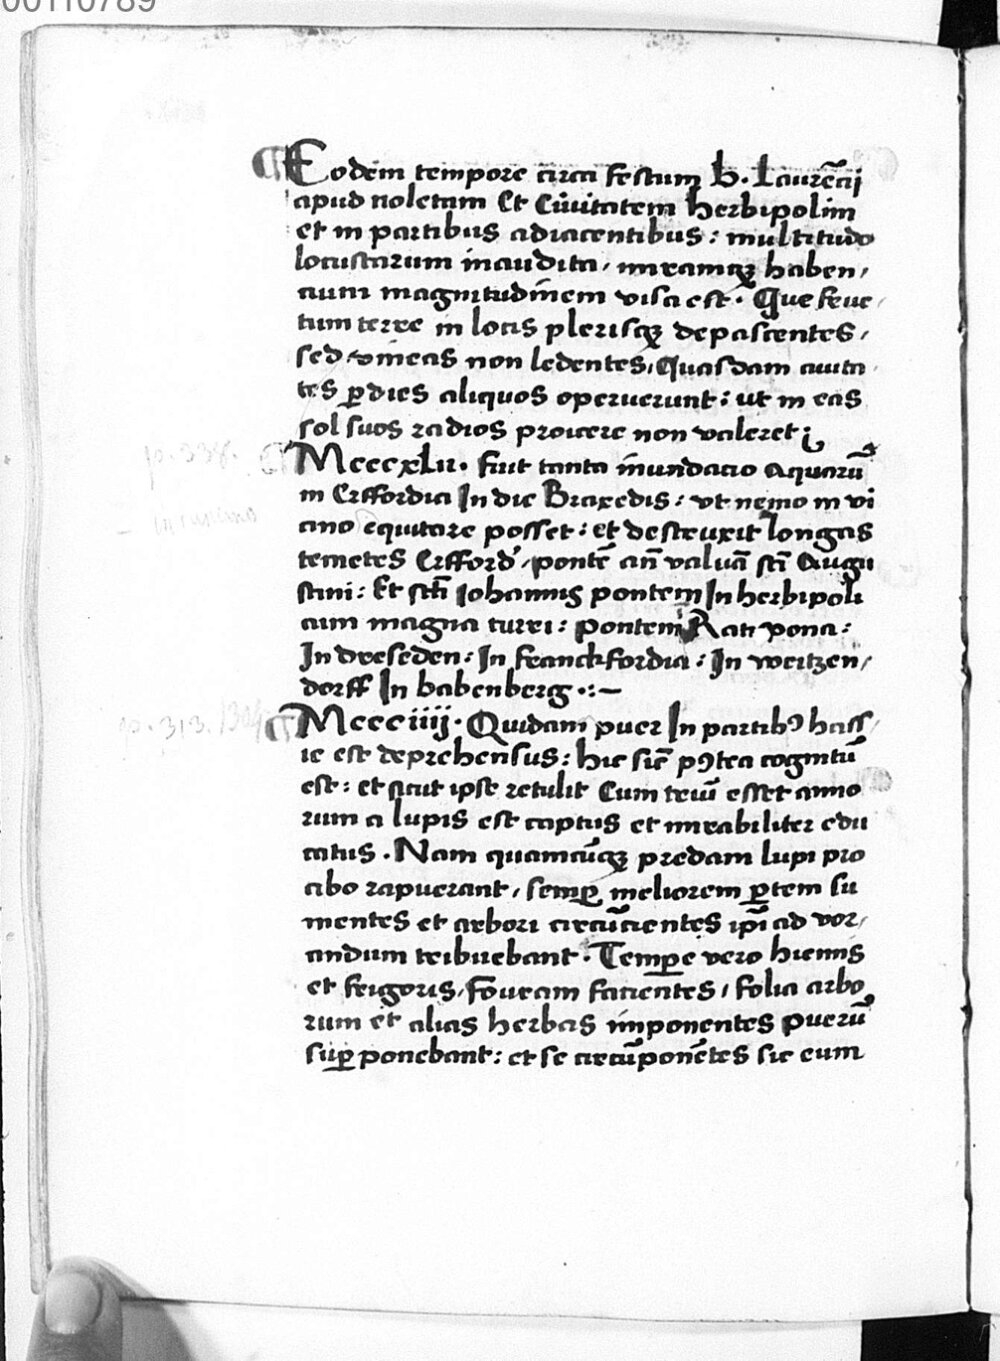 00110789
Eodem tempore circa festum b. Laurēcij
apud noletam Et Ciuitatem herbipolim
et in partibus adiacentibus: multitudo
locustarum inaudita, miramqꝫ haben,
cium magnitudinem visa est. Que feue,
tum terre in locis plerisqꝫ depascentes,
sed vineas non ledentes, Quasdam ciuita
tes ꝑ dies aliquos operuerunt: ut in eas
sol suos radios proicere non valeret;
Mcccxlii. fuit tanta inundacio aquarū
in Erffordia In die Braxedis: vt nemo in vi
cino equitare posset: et destruxit longas
temetes Erfford', pontē an̄ valuā scī Augu
stini: Et scti Iohannis pontem In herbipoli
cum magna turri: pontem Ratipona:
In dreseden: In franckfordia: In weitzen,
dorff In babenberg.:~
p. 313. 1304
Mccciiij. Quidam puer In partibꝯ hass,
ie est deprehensus: hic sic̄ pꝯtea cognitū
est: et sicut ipse retulit Cum triū esset anno
rum a lupis est captus et mirabiliter edu
catus. Nam quamcūqꝫ predam lupi pro
cibo rapuerant, semꝑ meliorem ꝑtem su
mentes et arbori circūcientes ip̄i ad vor,
andum tribuebant. Tempe vero hiemis
et frigoris, foueam facientes, folia arbo
rum et alias herbas imponentes puerū
suꝑ ponebant: et se circūponētes sic eum